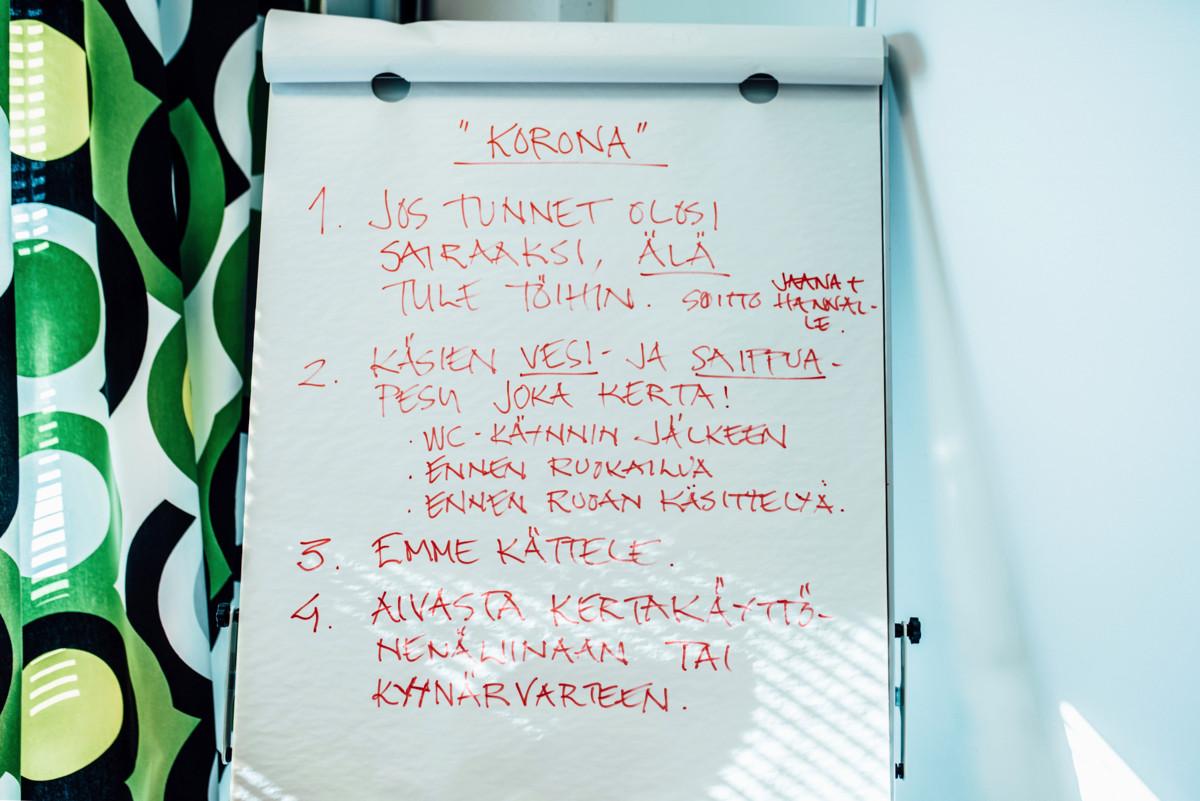 "KORONA"
1. JOS TUNNET OLOSI
SAIRAAKSI, ÄLÄ
TULE TÖIHIN. SOITTO JAANA +
HANNAL-
LE.
2. KÄSIEN VESI- JA SAIPPUA-
PESU JOKA KERTA!
· WC-KÄYNNIN JÄLKEEN
· ENNEN RUOKAILUA
· ENNEN RUOAN KÄSITTELYÄ.
3. EMME KÄTTELE.
4. AIVASTA KERTAKÄYTTÖ-
NENÄLIINAAN TAI
KYYNÄRVARTEEN.